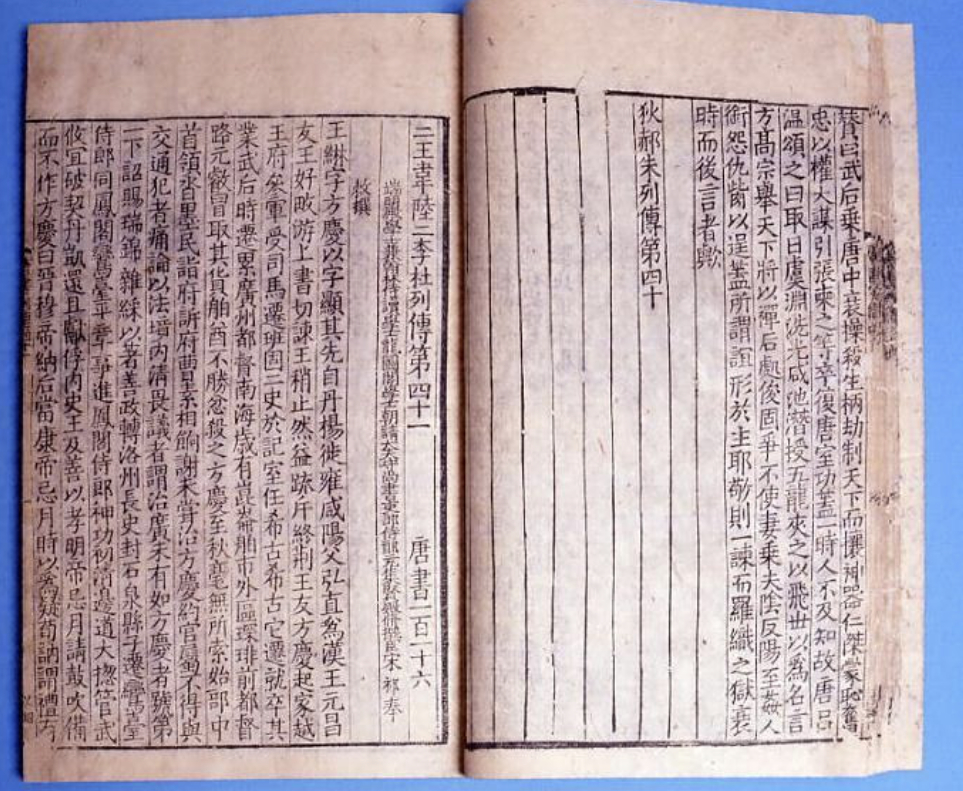 贊曰武后乗唐中衰操殺生柄劫制天下而攘神器仁傑蒙恥奮
忠以權大謀引張柬之等卒復唐室功蓋一時人不及知故唐呂
温頌之曰取日虞淵洗光咸池潛授五龍夾之以飛世以爲名言
方髙宗舉天下將以禪后處俊固爭不使妻乗夫陰反陽至姦人
銜怨仇胔以逞蓋所謂誼形於主耶敬則一諫而羅織之獄衰
時而後言者歟
狄郝朱列傳第四十
二王韋陸二李杜列傳第四十一 唐書一百一十六
端明殿學士兼翰林侍讀學士龍圖閣學士朝請大夫守尚書吏部侍郎充集賢殿脩撰臣宋 祁奉
敕撰
王綝字方慶以字顯其先自丹楊徙雍咸陽父弘直爲漢王元昌
友王好畋游上書切諫王稍止然益疎斥終荆王友方慶起家越
王府參軍受司馬遷班固二史於記室任希古希古它遷就卒其
業武后時遷累廣州都督南海歳有崑崙舶市外區琛琲前都督
路元叡冒取其貨舶酋不勝忿殺之方慶至秋毫無所索始部中
首領沓墨民詣府訴府曹素相餉謝未嘗治方慶約官屬不得與
交通犯者痛論以法境内清畏議者謂治廣未有如方慶者號第
一下詔賜瑞錦雜綵以著善政轉洛州長史封石泉縣子遷鸞臺
侍郎同鳳閣鸞臺平章事進鳳閣侍郎神功初清邊道大揔管武
攸宜破契丹凱還且獻俘内史王及善以孝明帝忌月請鼓吹備
而不作方慶曰晉穆帝納后當康帝忌月時以爲疑荀訥謂禮有